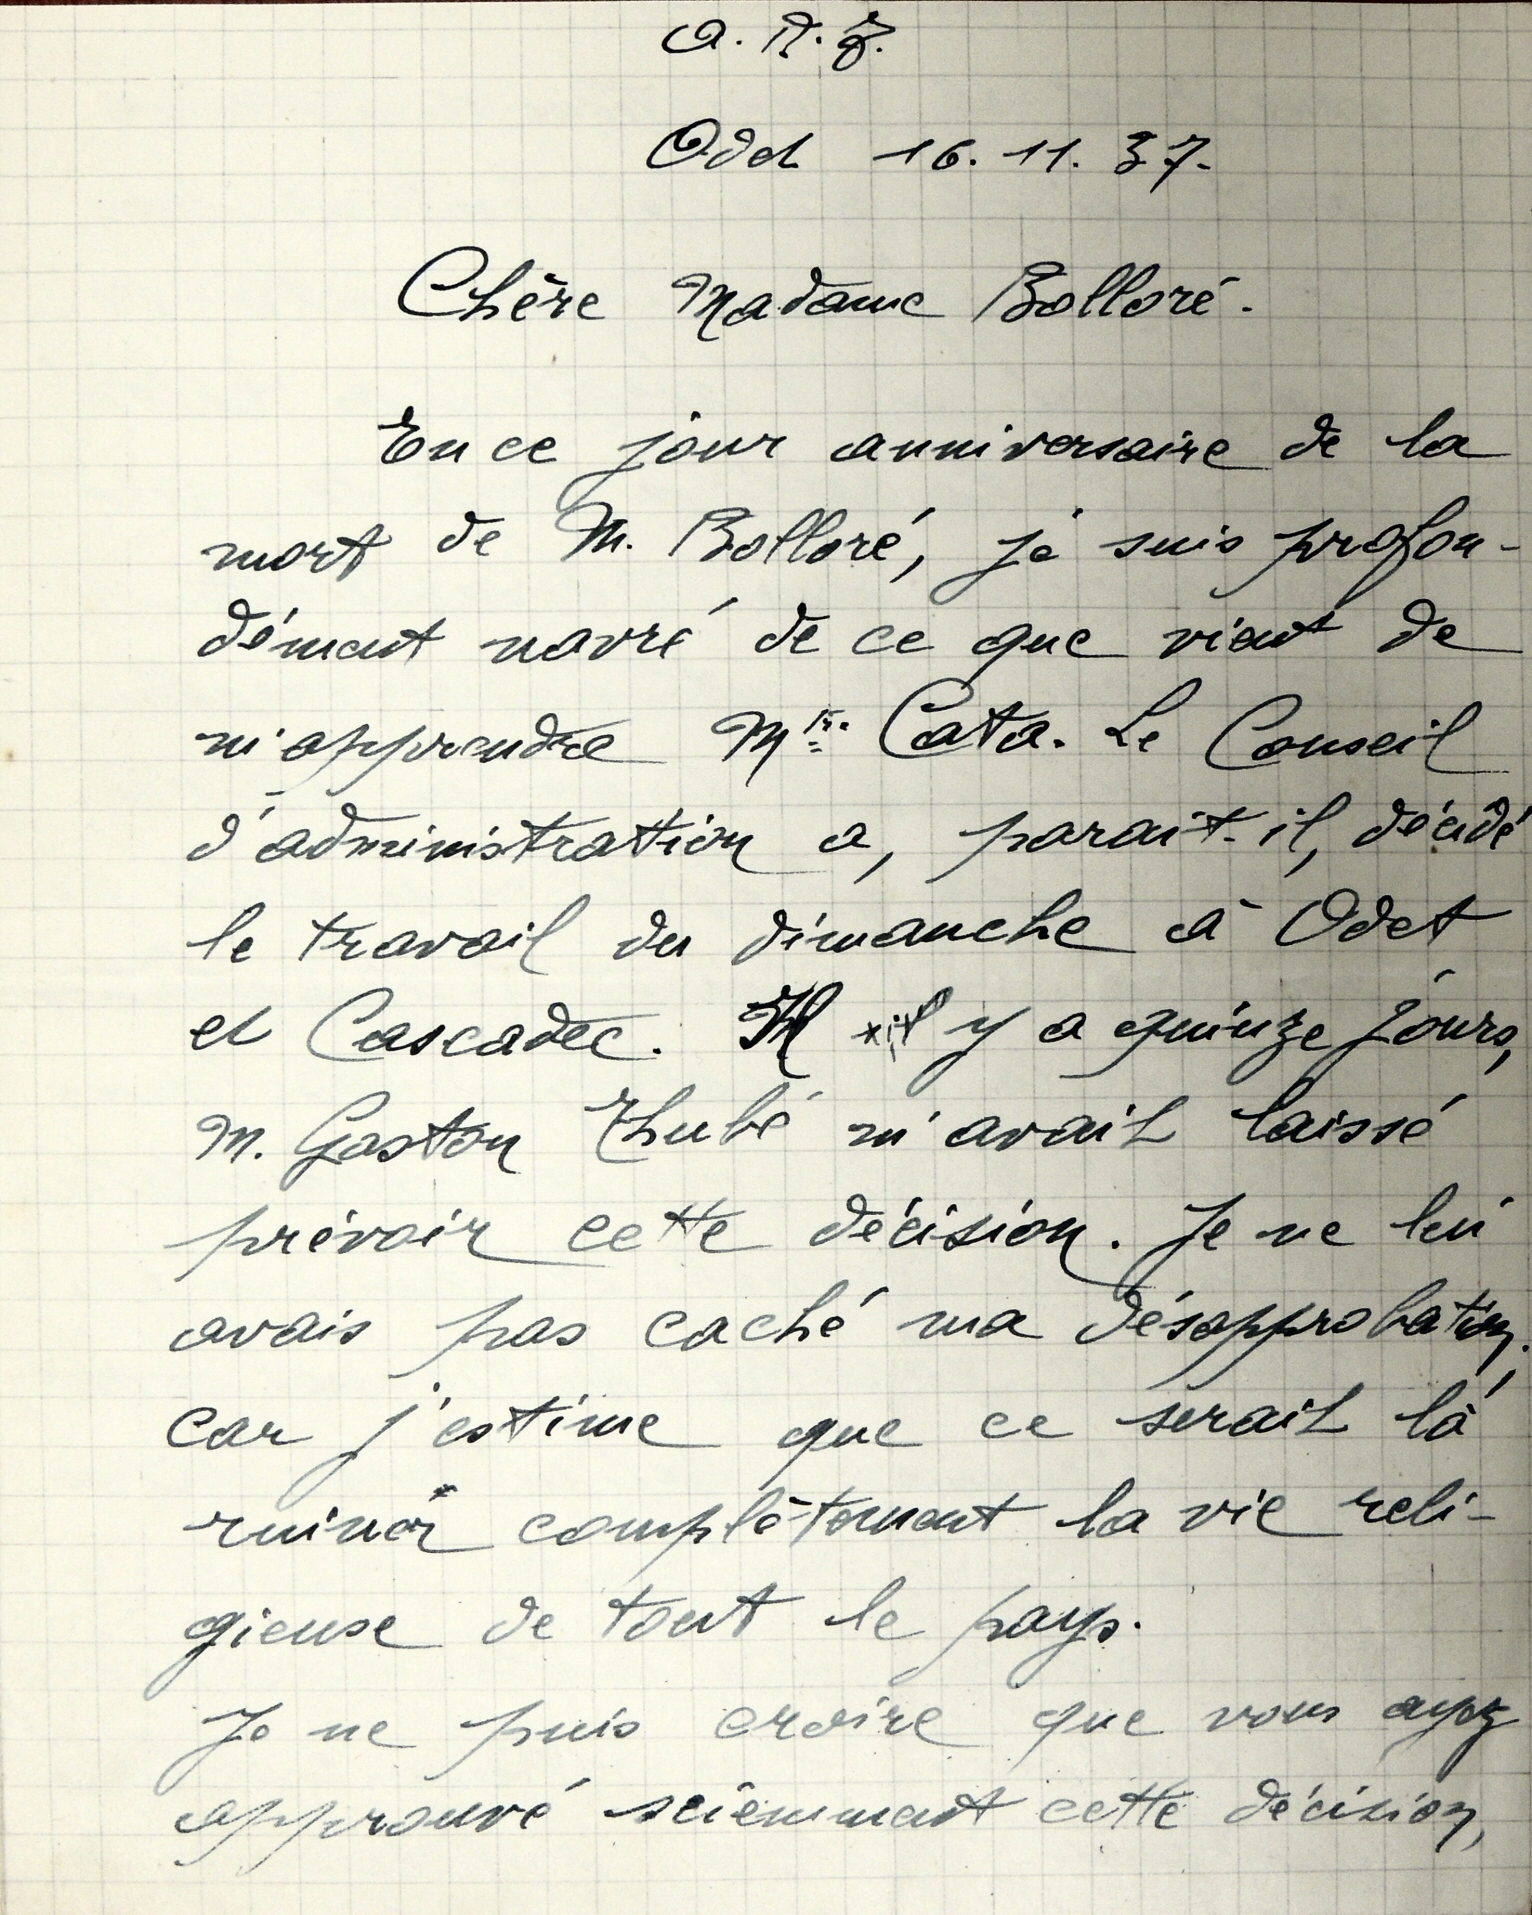 Odet 16.11.37.
Chère Madame Bolloré.
En ce jour anniversaire de la
mort de M. Bolloré, je suis profon-
dément navré de ce que vient de
m'apprendre Mr. Cata. Le Conseil
d'administration a, parait-il, décidé
le travail du dimanche à Odet
et Cascadec. Il y a quinze jours,
M. Gaston Thubé m'avait laissé
prévoir cette décision. Je ne lui
avais pas caché ma désapprobation,
car j'estime que ce serait là
ruiner complètement la vie reli-
gieuse de tout le pays.
Je ne puis croire que vous ayez
approuvé sciemment cette décision,